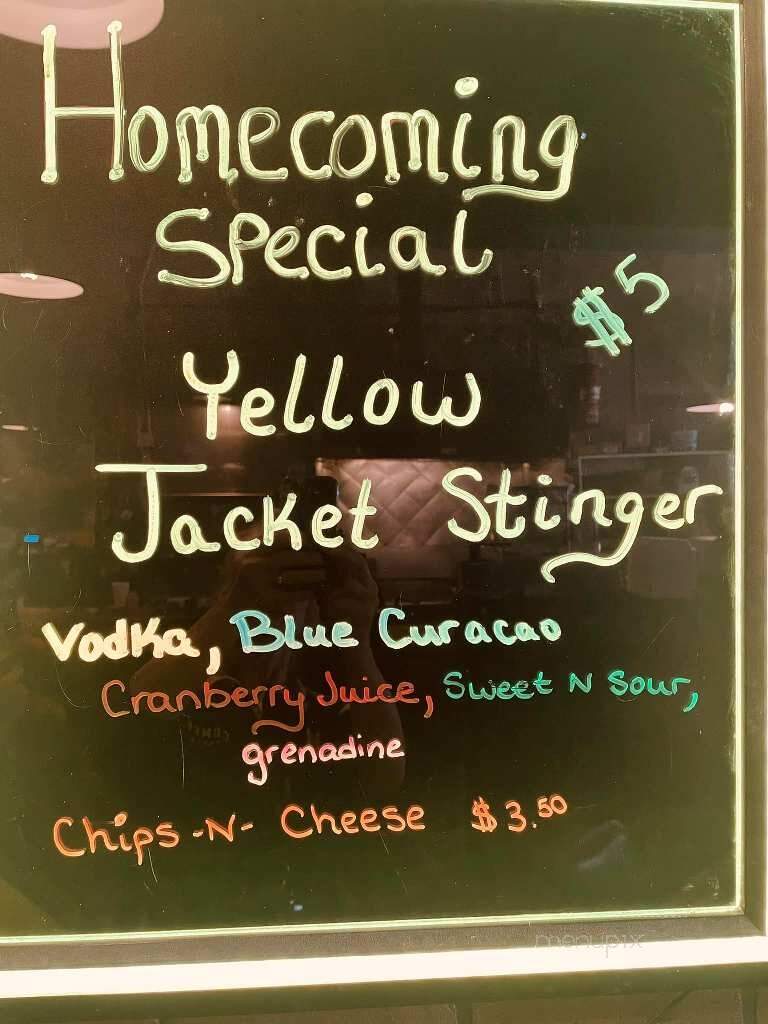 Homecoming
Special
$5
Yellow
Jacket Stinger
Vodka, Blue Curacao
Cranberry Juice, Sweet N Sour,
grenadine
Chips -N- Cheese $3.50
menupix